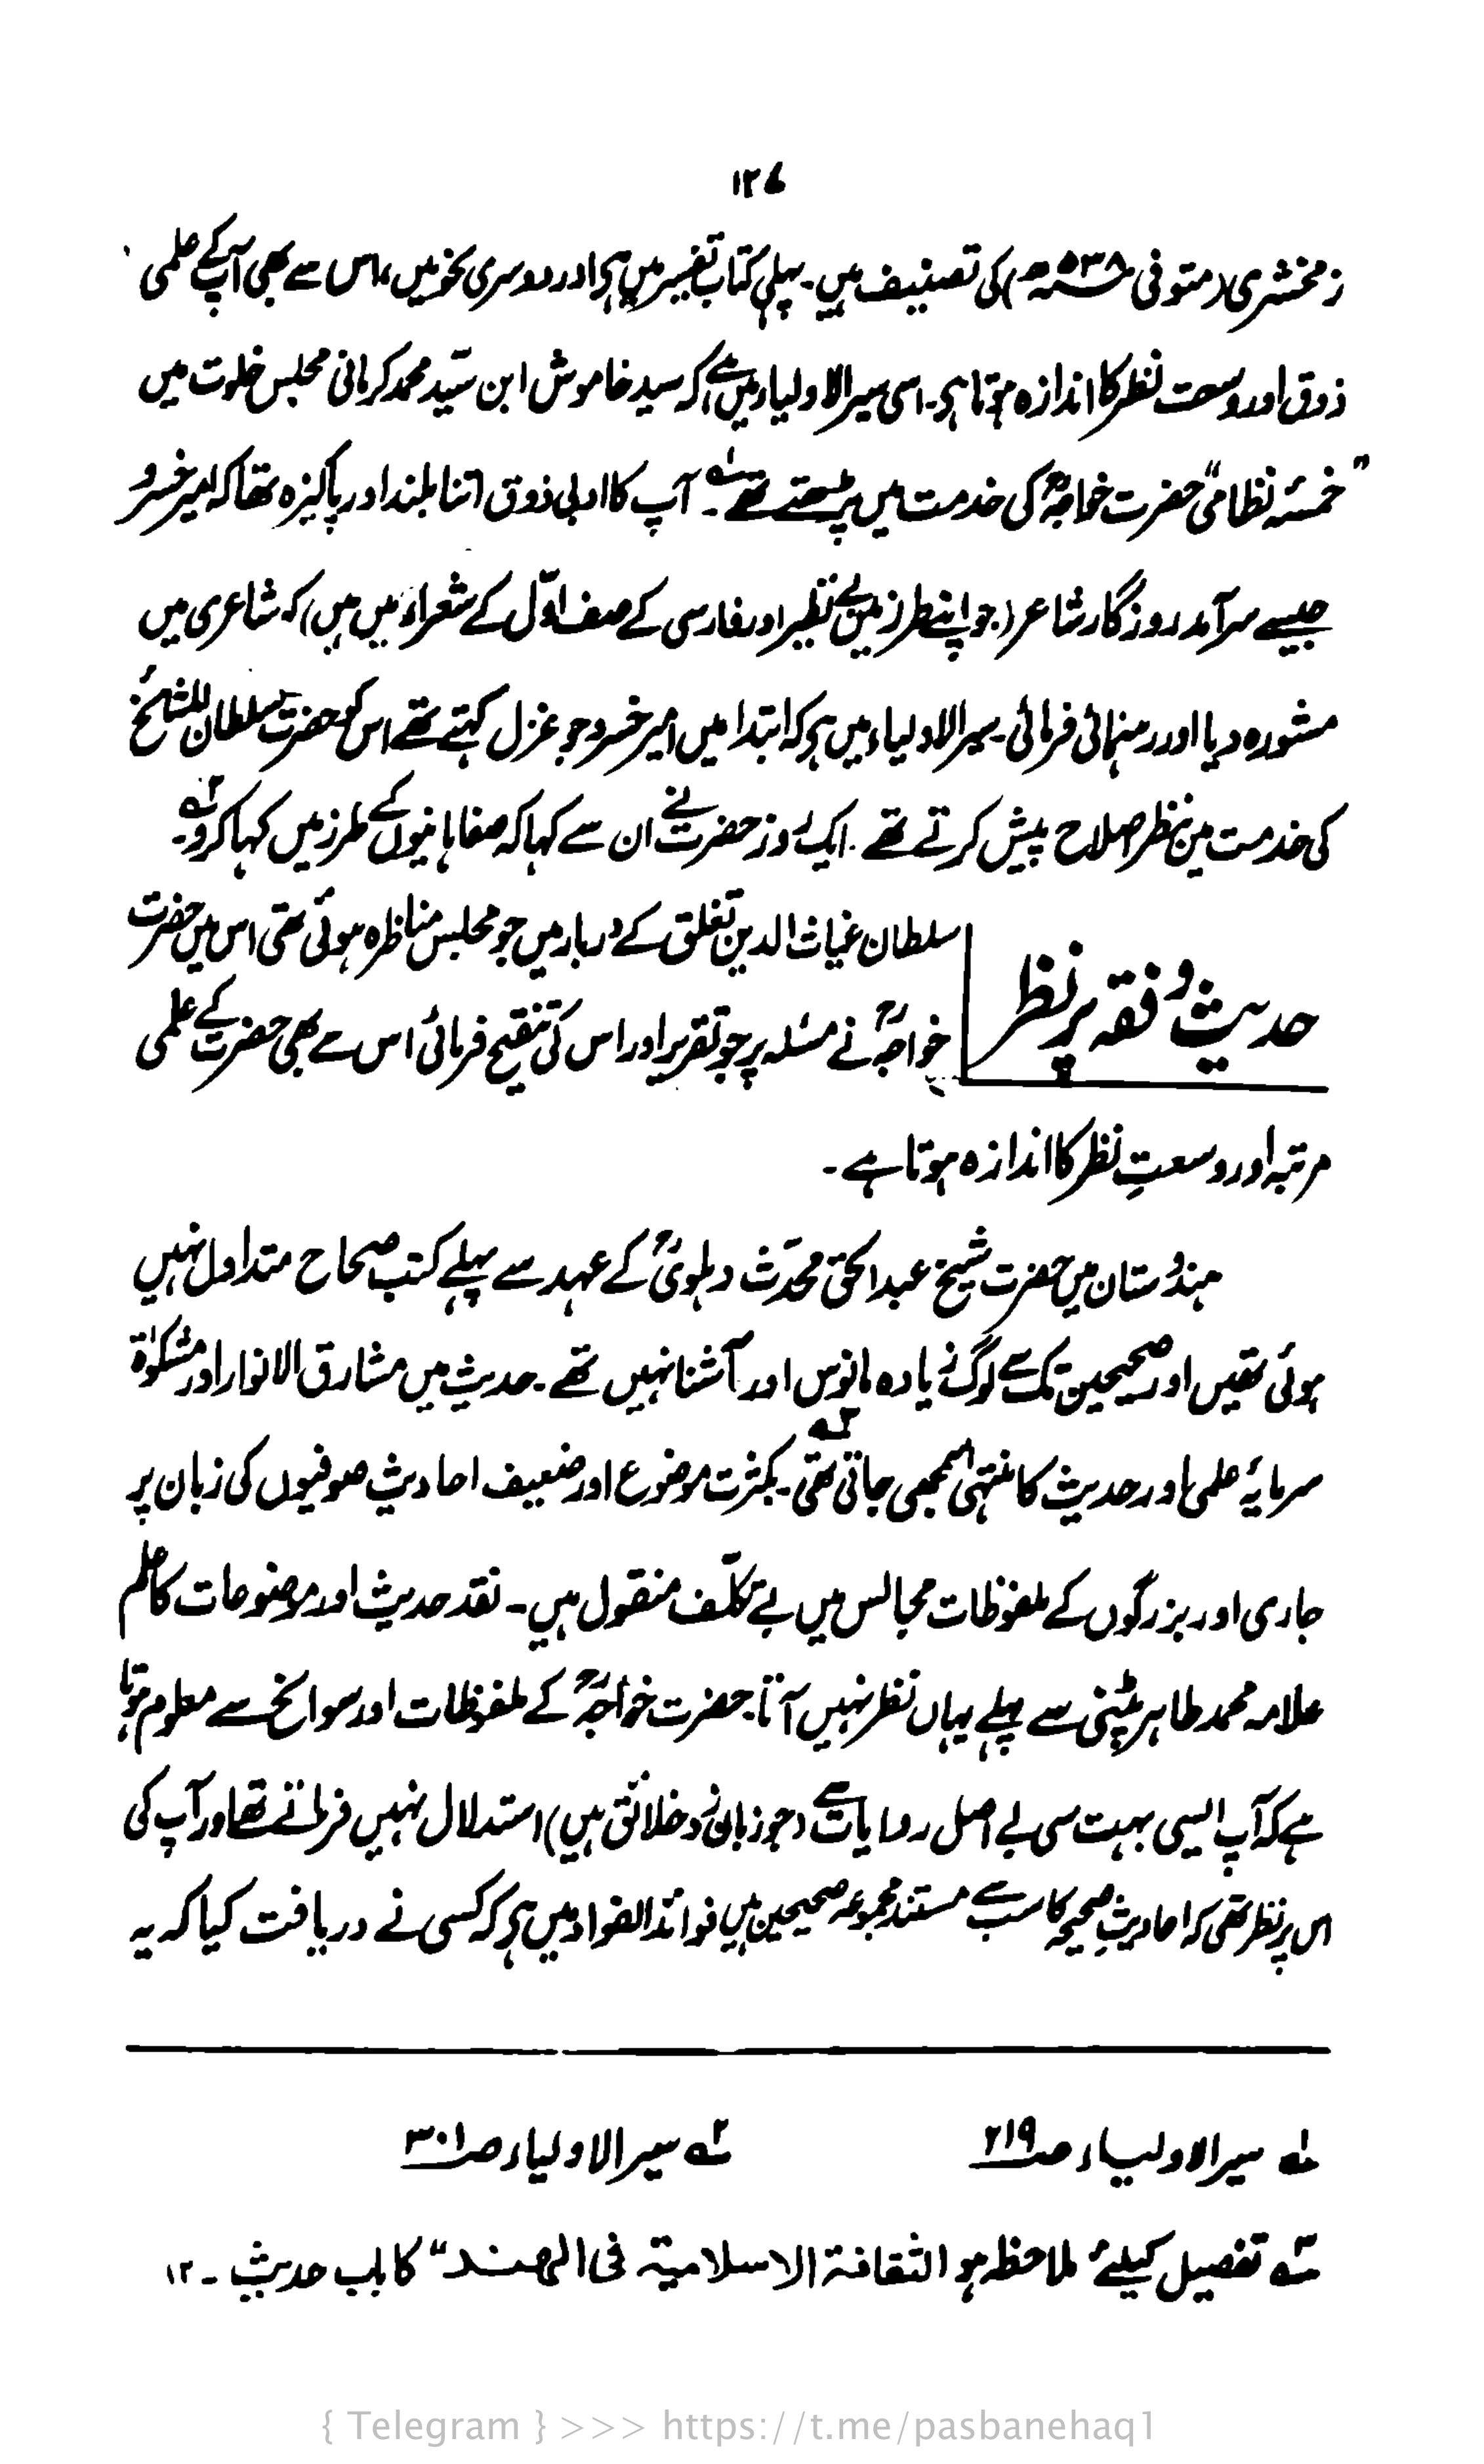 ۱۲۷
زمخشری (متوفی ۵۳۸ھ) کی تصنیف ہیں۔ پہلی کتاب تفسیر میں ہی اور دوسری نحو میں، اس سے بھی آپ کے علمی
ذوق اور وسعت نظر کا اندازہ ہوتا ہی۔ اسی سیر الاولیاء میں ہے کہ سید خاموش ابن سیّد محمد کرمانی مجلس خلوت میں
”خمسۂ نظامی“ حضرت خواجہؒ کی خدمت میں پڑھتے تھے۱؎۔ آپ کا ادبی ذوق اتنا بلند اور پاکیزہ تھا کہ امیر خسرو
جیسے سرآمد روزگار شاعر (جو اپنے طرز میں بے نظیر اور فارسی کے صف اوّل کے شعراء میں ہیں) کہ شاعری میں
مشورہ دیا اور رہنمائی فرمائی۔ سیر الاولیاء میں ہی کہ ابتدا میں امیر خسرو جو غزل کہتے تھے اس کو حضرت سلطان المشائخ
کی خدمت میں بنظر اصلاح پیش کرتے تھے۔ ایک روز حضرت نے ان سے کہا کہ صفاہانیوں کے طرز میں کہا کرو۲؎۔
حدیث و فقہ پر نظر
سلطان غیاث الدین تغلق کے دربار میں جو مجلس مناظرہ ہوئی تھی اس میں حضرت
خواجہؒ نے مسئلہ پر جو تقریر اور اس کی تنقیح فرمائی اس سے بھی حضرت کے علمی
مرتبہ اور وسعتِ نظر کا اندازہ ہوتا ہے۔
ہندوستان میں حضرت شیخ عبدالحق محدّث دہلویؒ کے عہد سے پہلے کتب صحاح متداول نہیں
ہوئی تھیں اور صحیحین تک سے لوگ زیادہ مانوس اور آشنا نہیں تھے۔ حدیث میں مشارق الانوار اور مشکوٰۃ
سرمایۂ علمی اور حدیث کا منتہیٰ سمجھی جاتی تھی۳؎۔ بکثرت موضوع اور ضعیف احادیث صوفیوں کی زبان پر
جاری اور بزرگوں کے ملفوظات مجالس میں بے تکلّف منقول ہیں۔ نقد حدیث اور موضوعات کا علم
علامہ محمد طاہر پٹنی سے پہلے یہاں نظر نہیں آتا۔ حضرت خواجہؒ کے ملفوظات اور سوانح سے معلوم ہوتا
ہے کہ آپ ایسی بہت سی بے اصل روایات سے (جو زبان زد خلائق ہیں) استدلال نہیں فرماتے تھے اور آپ کی
اس پر نظر تھی کہ احادیثِ صحیحہ کا سب سے مستند مجموعہ صحیحین ہیں فوائد الفواد میں ہی کہ کسی نے دریافت کیا کہ یہ
۱؎ سیر الاولیاء صـ۲۱۹
۲؎ سیر الاولیاء صـ۳۰۱
۳؎ تفصیل کیلئے ملاحظہ ہو الثقافۃ الاسلامیۃ فی الہند“ کا باب حدیث۔ ۱۲
{ Telegram } >>> https://t.me/pasbanehaq1